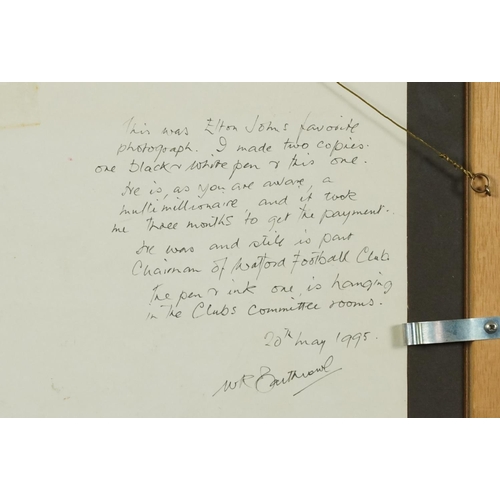 This was Elton Johns favorite
photograph. I made two copies.
one black & white pen & this one.
He is, as you are aware, a
multi millionaire and it took
me three months to get the payment.
He was and still is part
Chairman of Watford Football Clubs
The pen & ink one, is hanging
in the Clubs committee rooms.
20th May 1995.
WR